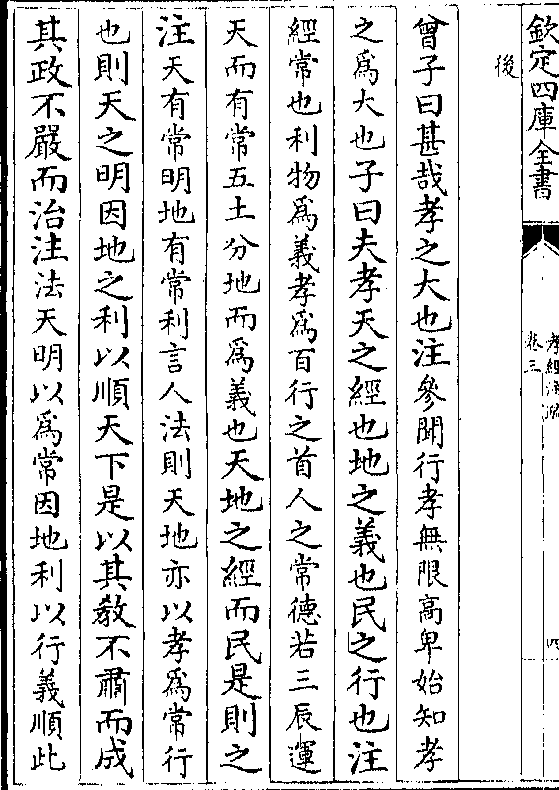 欽定四庫全書
孝經注疏
卷三
四
後
曾子曰甚哉孝之大也注參聞行孝無限髙卑始知孝
之為大也子曰夫孝天之經也地之義也民之行也注
經常也利物為義孝為百行之首人之常德若三辰運
天而有常五土分地而為義也天地之經而民是則之
注天有常明地有常利言人法則天地亦以孝為常行
也則天之明因地之利以順天下是以其敎不肅而成
其政不嚴而治注法天明以為常因地利以行義順此